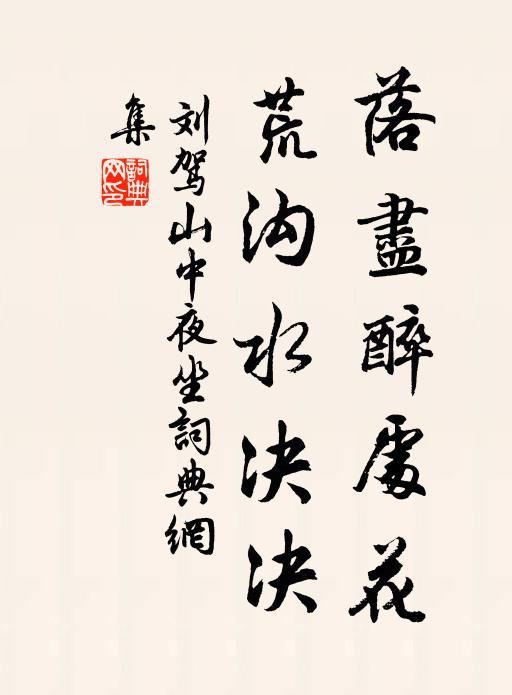 落盡醉處花
荒沟水决决
刘驾山中夜坐詞典網
集
詞典网印